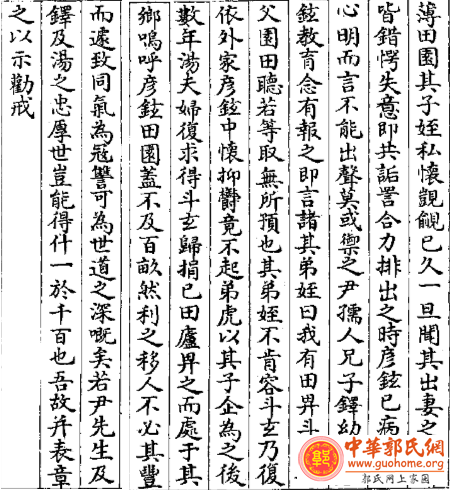 薄田園其子姪私懷覬覦已久一旦聞其出妻之子
皆錯愕失意即共詬詈合力排出之時彥鉉已病
心明而言不能出聲莫或禦之尹孺人兄子鐸幼
鉉教育念有報之即言諸其弟姪曰我有田畀斗
父園田聽若等取無所預也其弟姪不肯容斗玄乃復
依外家彥鉉中懷抑鬱竟不起弟虎以其子企為之後
數年湯夫婦復求得斗玄歸捐已田廬畀之而處于其
鄉嗚呼彥鉉田園蓋不及百畝然利之移人不必其豐
而遽致同氣為寇讐可為世道之深嘅矣若尹先生及
鐸及湯之忠厚世豈能得什一於千百也吾故并表章
之以示勸戒
中華郭氏網
www.guohome.org
郭氏網上家園